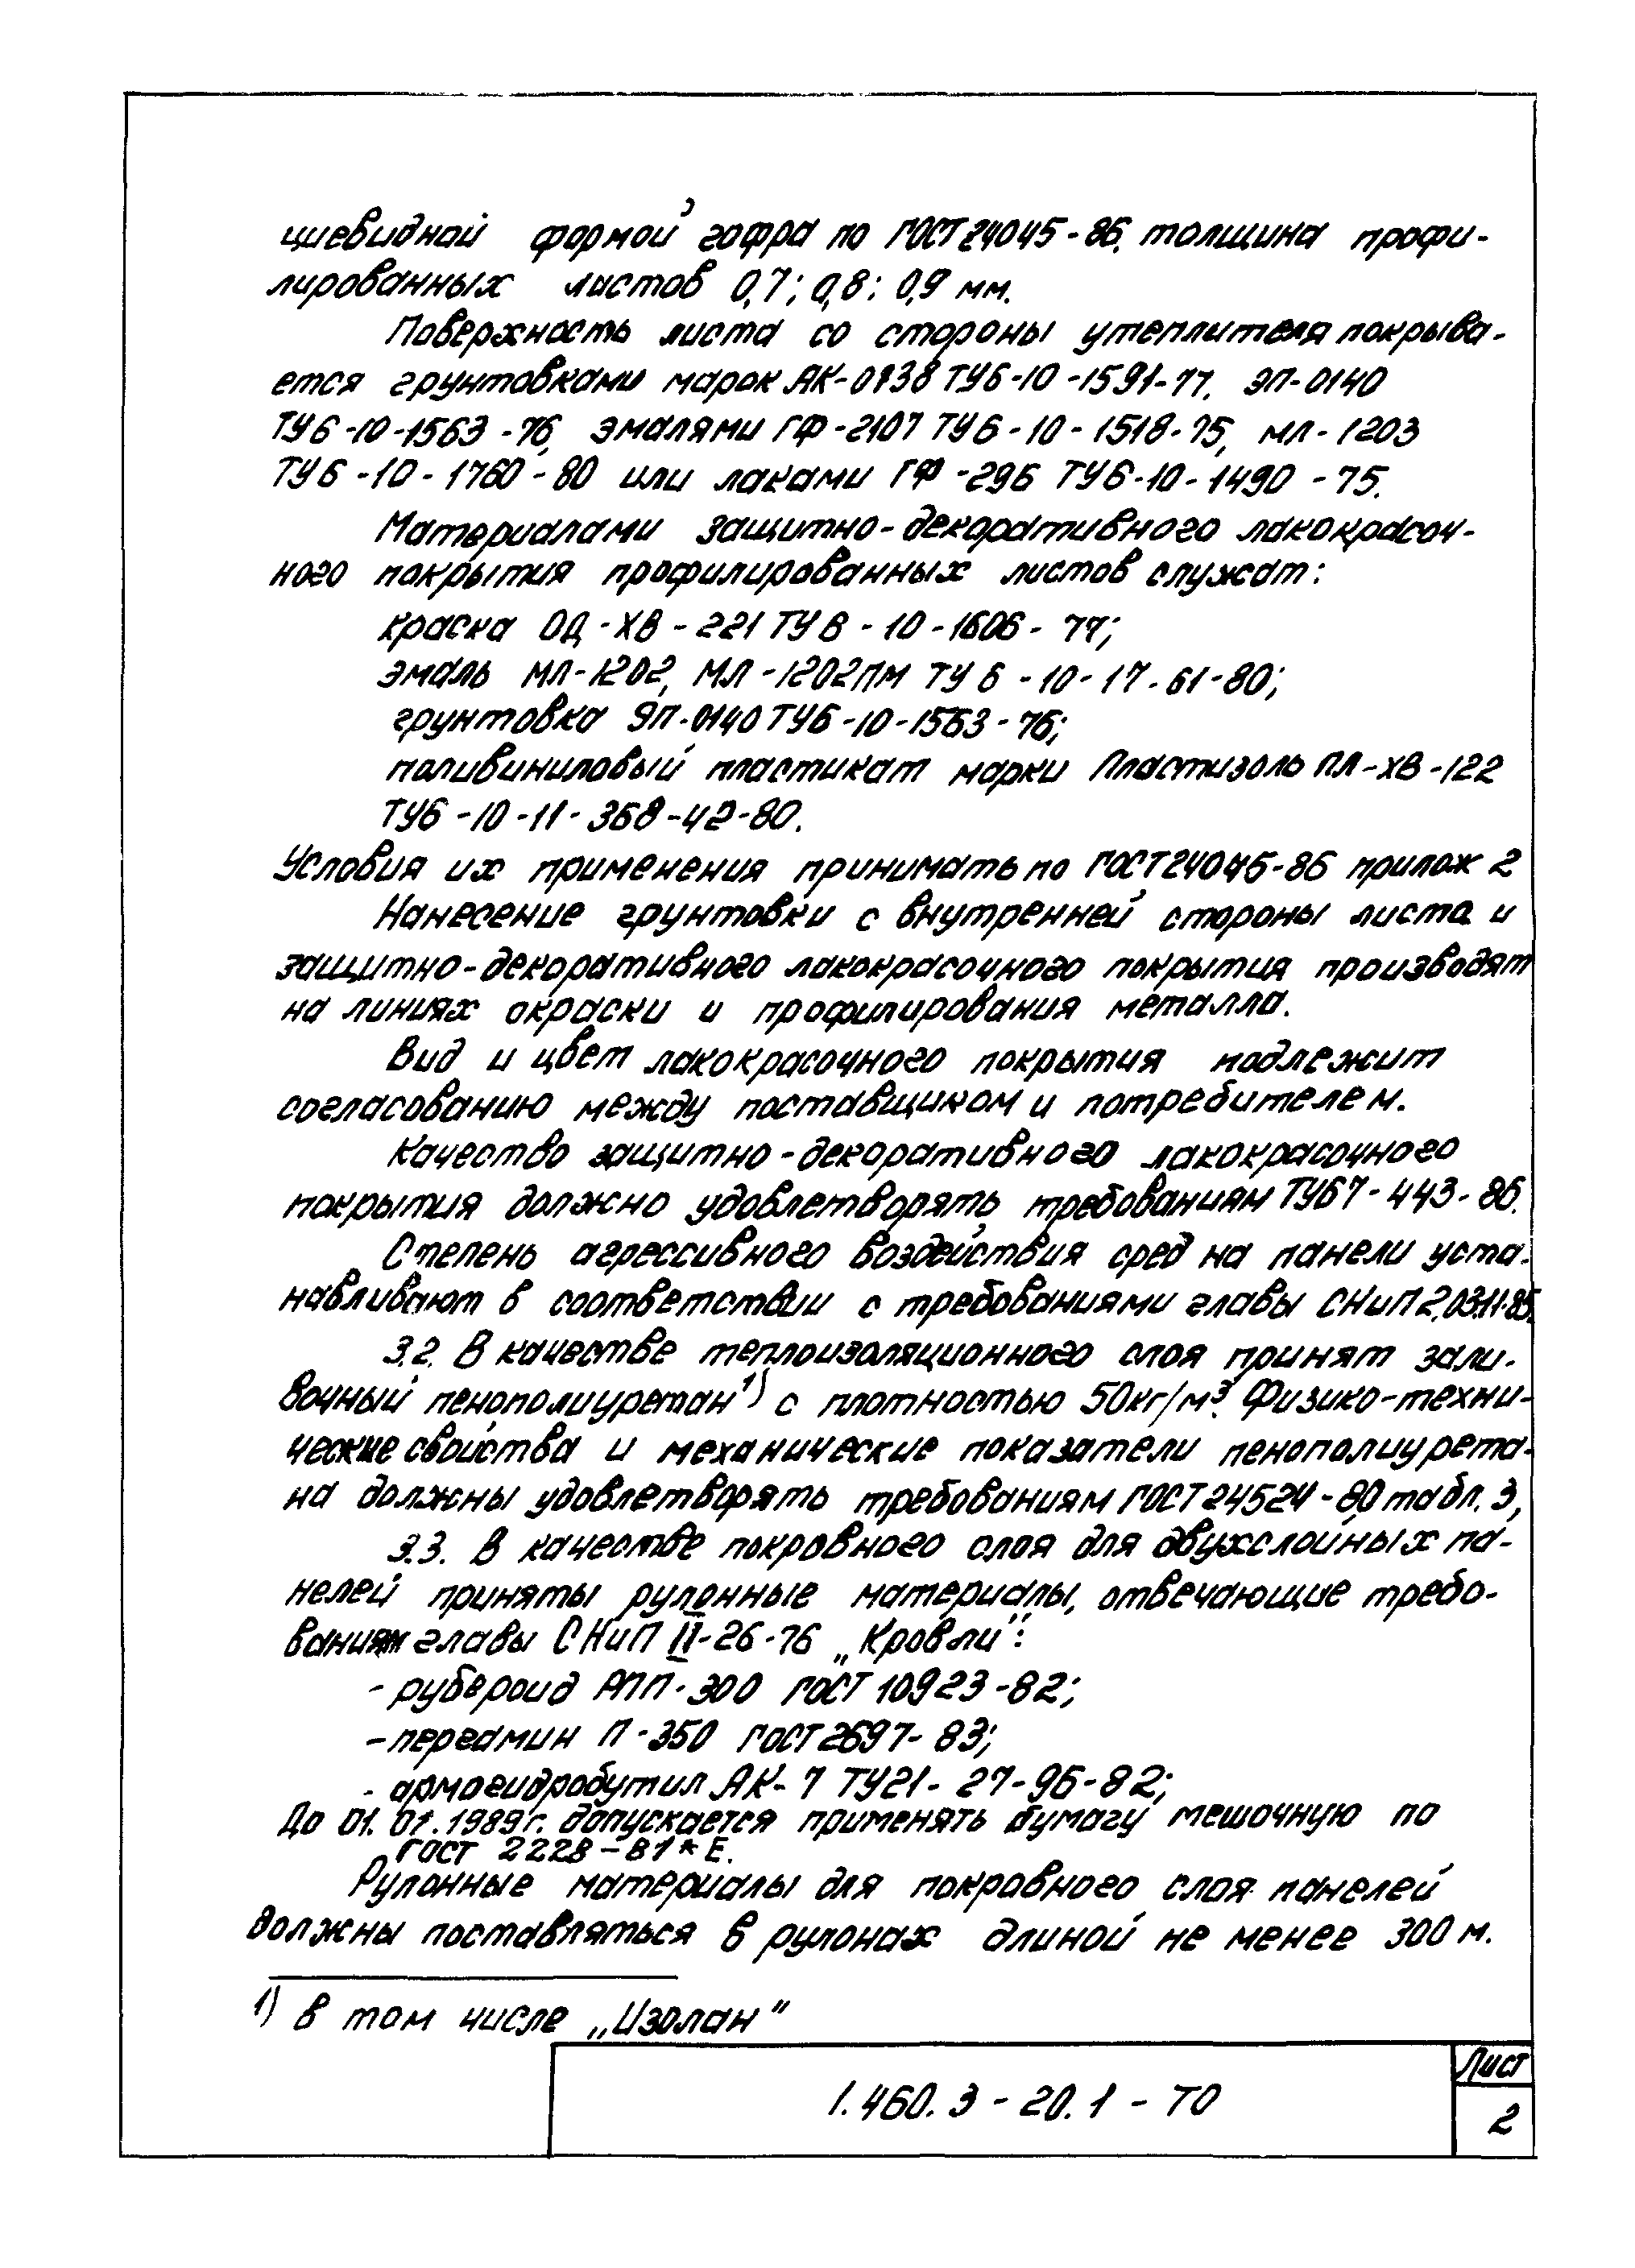 циевидной формой гофра по ГОСТ 24045-86. толщина профи-
лированных листов 0,7; 0,8; 0,9 мм.
Поверхность листа со стороны утеплителя покрыва-
ется грунтовками марок АК-0138 ТУ6-10-1591-77, ЭП-0140
ТУ6-10-1563-76, эмалями ГФ-2107 ТУ6-10-1518-75, МЛ-1203
ТУ6-10-1760-80 или лаками ГФ-296 ТУ6-10-1490-75.
Материалами защитно-декоративного лакокрасоч-
ного покрытия профилированных листов служат:
краска ОД-ХВ-221 ТУ В-10-1606-77;
эмаль МЛ-1202, МЛ-1202ПМ ТУ 6-10-17-61-80;
грунтовка ЭП-0140 ТУ6-10-1563-76;
поливиниловый пластикат марки Пластизоль ПЛ-ХВ-122
ТУ6-10-11-368-42-80.
Условия их применения принимать по ГОСТ 24045-86 прилож 2
Нанесение грунтовки с внутренней стороны листа и
защитно-декоративного лакокрасочного покрытия производят
на линиях окраски и профилирования металла.
Вид и цвет лакокрасочного покрытия подлежит
согласованию между поставщиком и потребителем.
Качество защитно-декоративного лакокрасочного
покрытия должно удовлетворять требованиям ТУ67-443-86.
Степень агрессивного воздействия сред на панели уста-
навливают в соответствии с требованиями главы СНиП 2.03.11-85.
3.2. В качестве теплоизоляционного слоя принят зали-
вочный пенополиуретан 1) с плотностью 50кг/м³. Физико-техни-
ческие свойства и механические показатели пенополиурета-
на должны удовлетворять требованиям ГОСТ 24524-80 табл. 3,
3.3. В качестве покровного слоя для двухслойных па-
нелей приняты рулонные материалы, отвечающие требо-
ваниям главы СНиП II-26-76 „Кровли":
- рубероид РПП-300 ГОСТ 10923-82;
- пергамин П-350 ГОСТ 2697-83;
- армогидробутил АК-7 ТУ21-27-96-82;
До 01.07.1989г. допускается применять бумагу мешочную по
ГОСТ 2228-81*Е.
Рулонные материалы для покровного слоя панелей
должны поставляться в рулонах длиной не менее 300 м.
1) в том числе „Изолан"
1.460.3-20.1-ТО
Лист
2